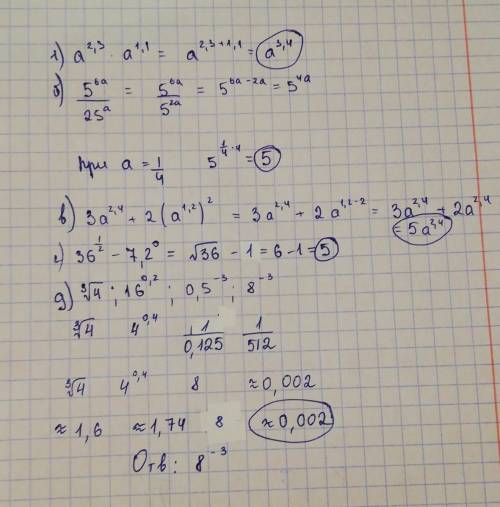 1) a^{2,3} · a^{1,1} = a^{2,3+1,1} = a^{3,4}
б) \frac{5^{6a}}{25^{a}} = \frac{5^{6a}}{5^{2a}} = 5^{6a-2a} = 5^{4a}
при a = \frac{1}{4} 5^{\frac{1}{4}·4} = 5
в) 3a^{2,4} + 2(a^{1,2})^2 = 3a^{2,4} + 2a^{1,2·2} = 3a^{2,4} + 2a^{2,4}
= 5a^{2,4}
г) 36^{\frac{1}{2}} - 7,2^0 = √36 - 1 = 6 - 1 = 5
д) ∛4 ; 16^{0,2} ; 0,5^{-3} ; 8^{-3}
∛4 4^{0,4} \frac{1}{0,125} \frac{1}{512}
∛4 4^{0,4} 8 ≈0,002
≈1,6 ≈1,74 8 ≈0,002
Отв: 8^{-3}